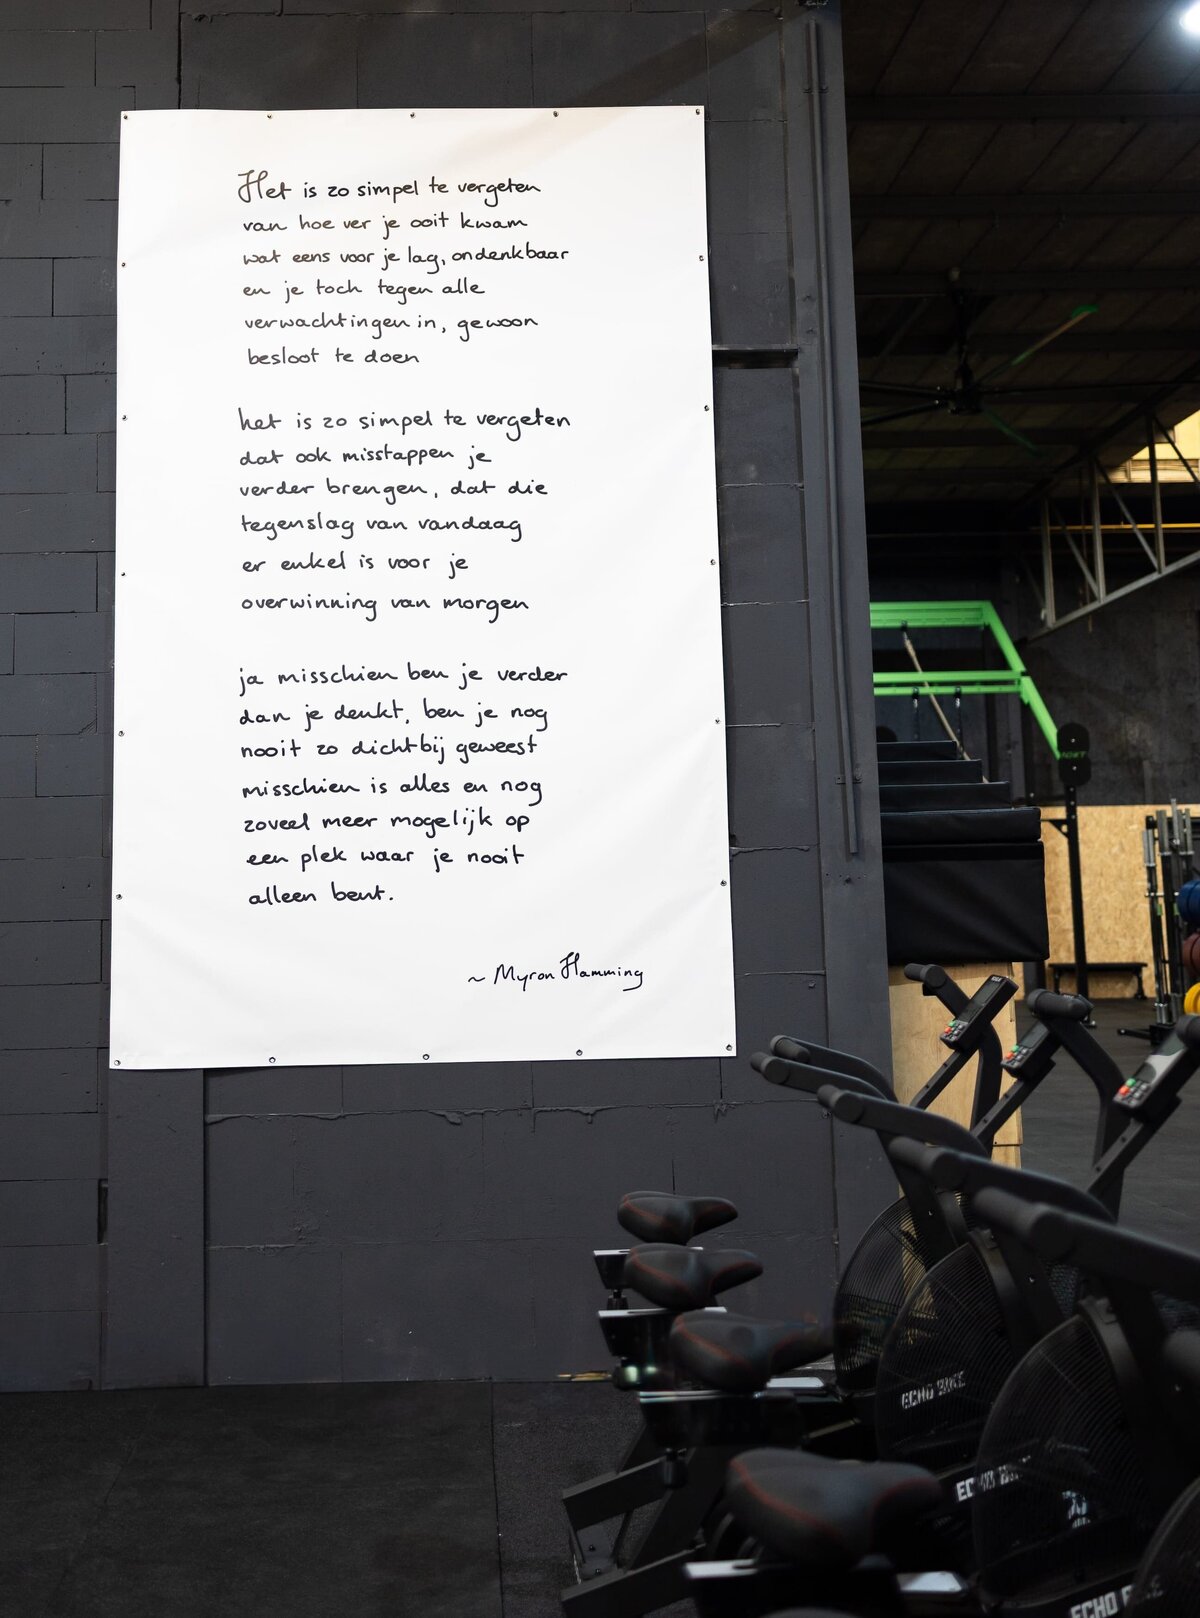 Het is zo simpel te vergeten
van hoe ver je ooit kwam
wat eens voor je lag, ondenkbaar
en je toch tegen alle
verwachtingen in, gewoon
besloot te doen
het is zo simpel te vergeten
dat ook misstappen je
verder brengen, dat die
tegenslag van vandaag
er enkel is voor je
overwinning van morgen
ja misschien ben je verder
dan je denkt, ben je nog
nooit zo dichtbij geweest
misschien is alles en nog
zoveel meer mogelijk op
een plek waar je nooit
alleen bent.
~ Myron Hamming
ECHO BIKE
ECHO
ECHO